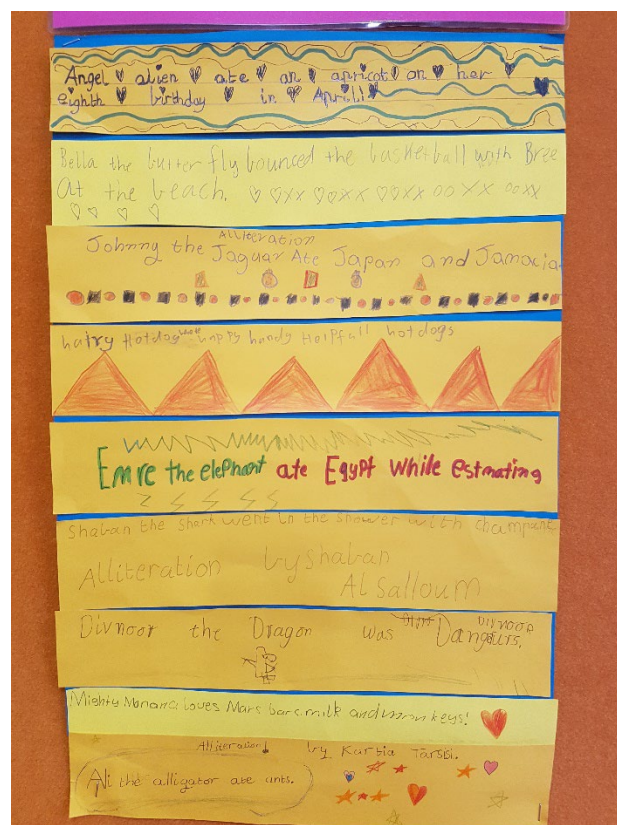 Angel alien ate an apricot on her
eighth birthday in April!
Bella the butterfly bounced the basketball with Brze
At the beach. xx xx xx oo xx oo xx
Alliteration
Johnny the Jaguar Ate Japan and Jamacia
hairy Hotdog happy handy Helpfall hotdogs
Emre the elephant ate Egypt while estmating
Shaban the shark went in the shower with
Alliteration by shaban
Al Salloum
Divnoor the Dragon was Dangeurs.
Divnoor
Mighty loves Mars bars, milk and monkeys!
Alliteration by
Ali the alligator ate ants.